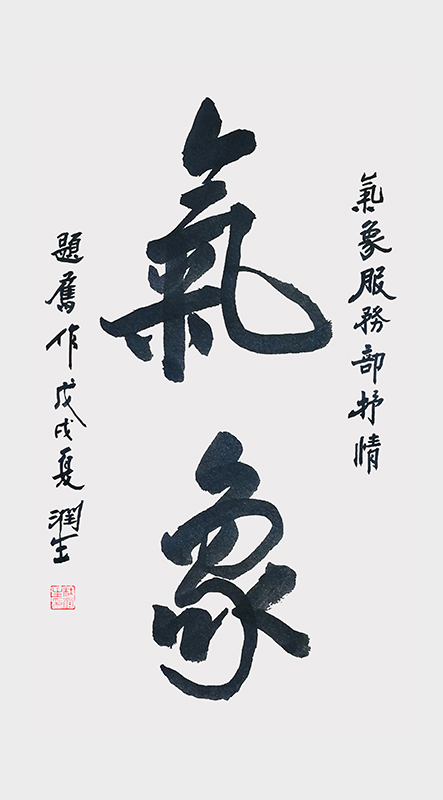 氣象服務部抒情
氣象
題舊作戊戌夏潤生